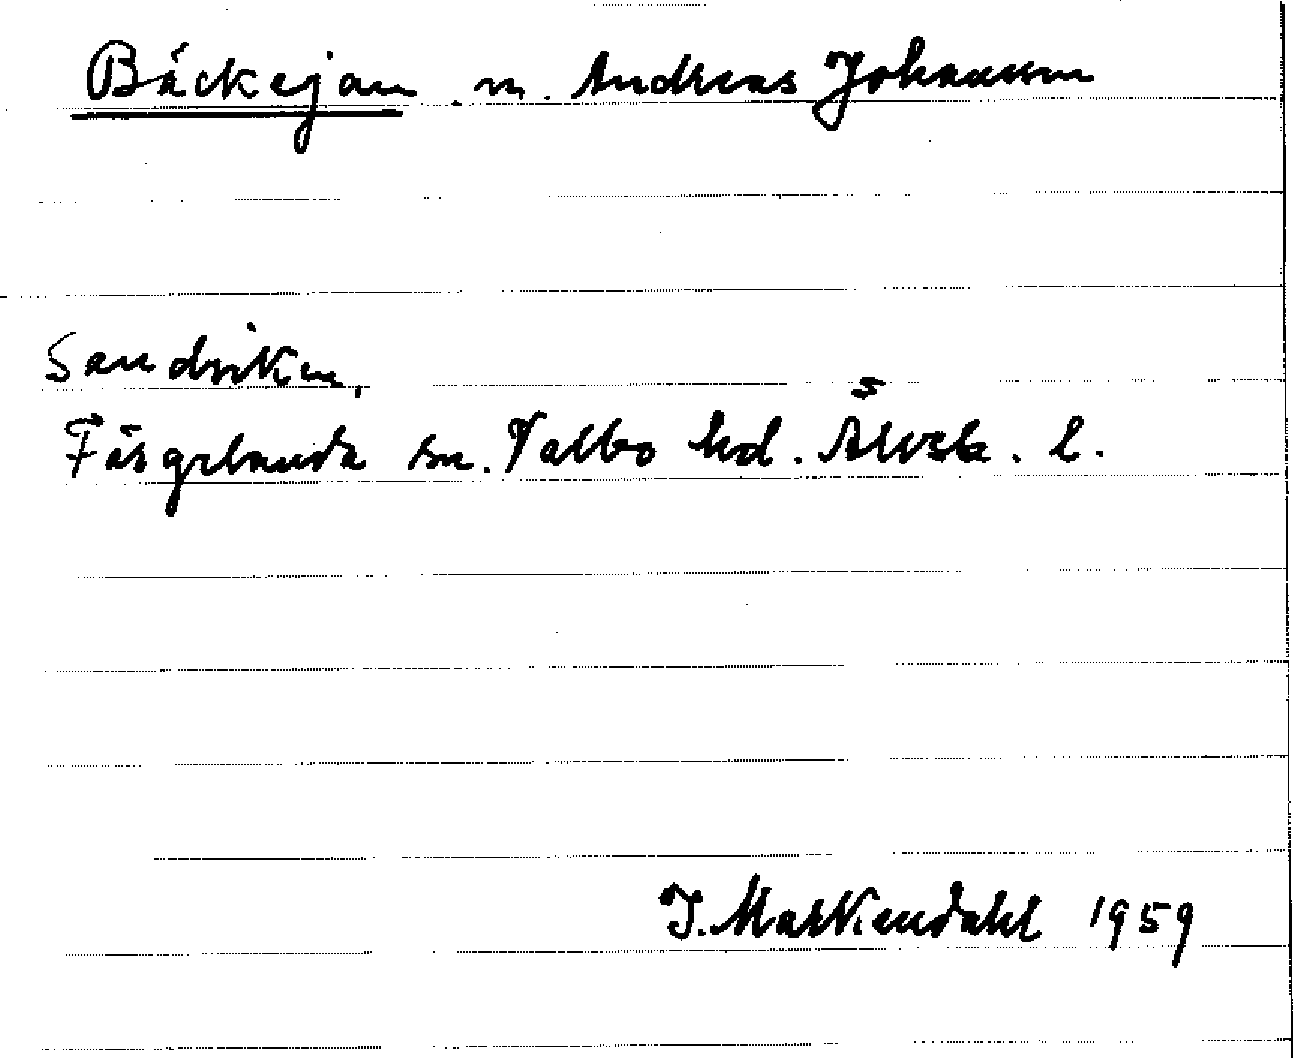 Bäckejan m. Andreas Johansson
Sandviken,
Färgelanda sn. Valbo hd. Älvsb. l.
J. Markendahl 1959